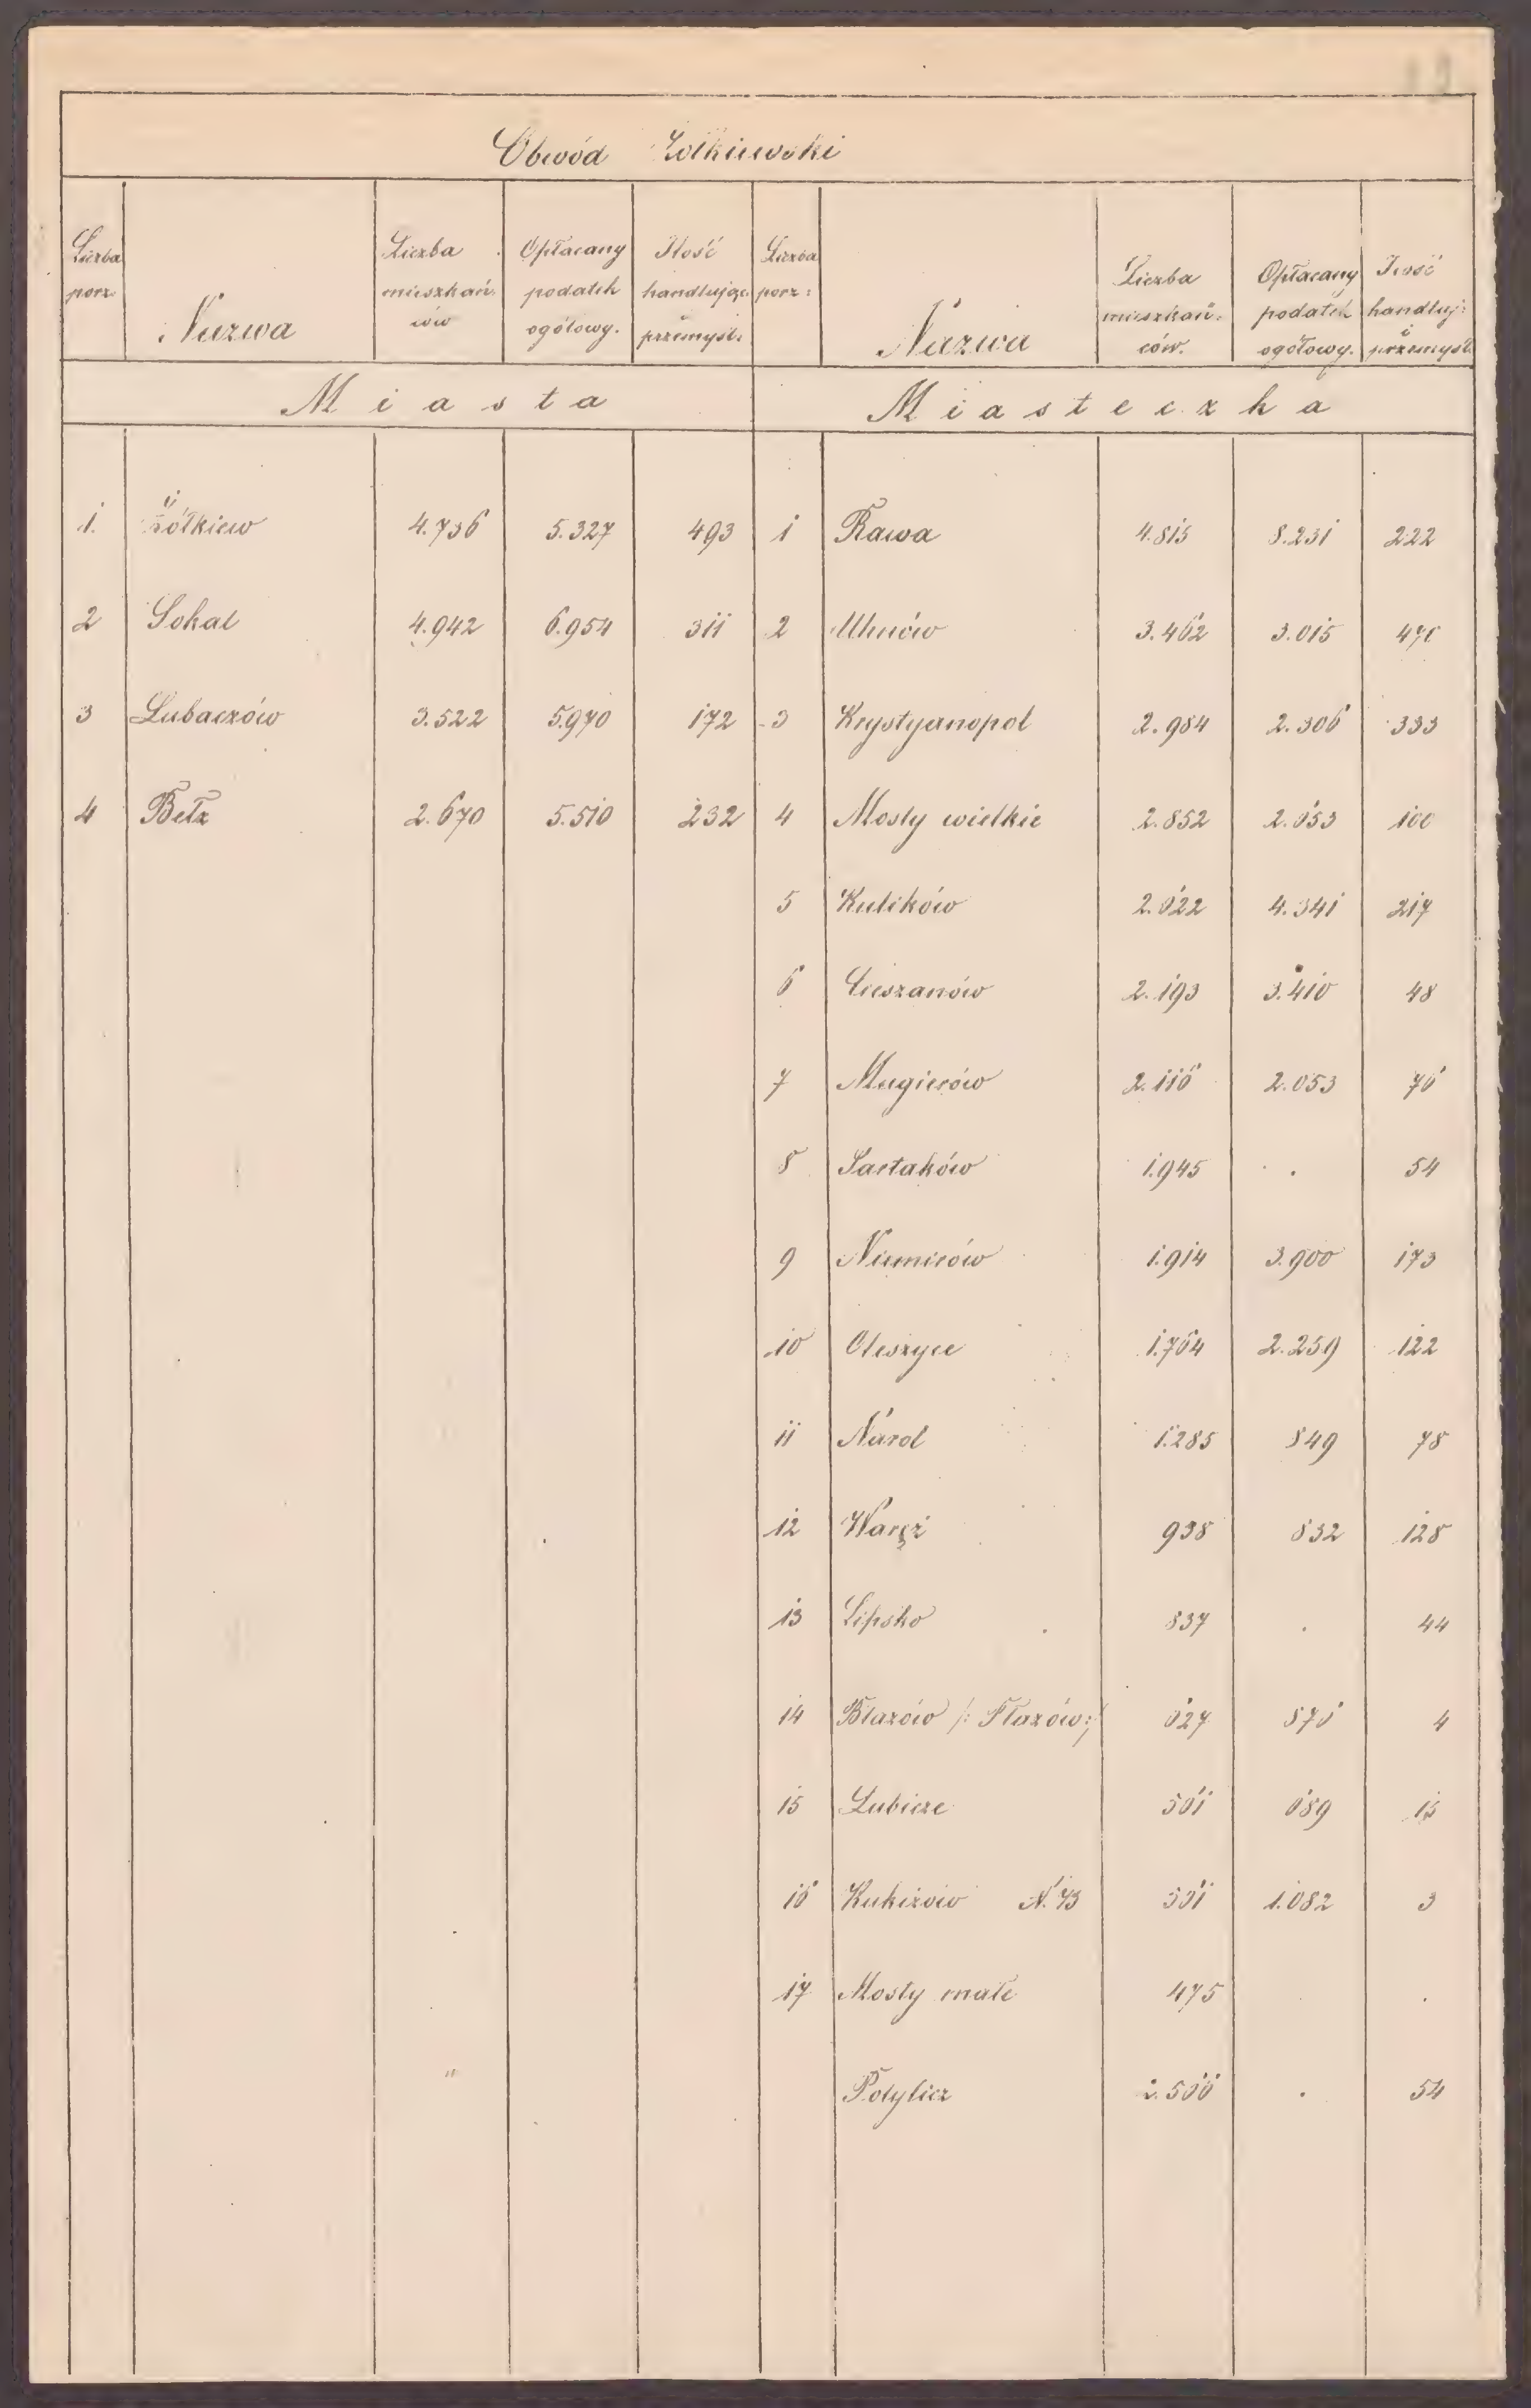 Obwód Żółkiewski
Liczba porz. Nazwa Liczba mieszkań ców Opłacany podatek ogółowy. Ilość handlując. i przemysł. Liczba porz: Nazwa Liczba mieszkań: ców. Opłacany podatek ogółowy. Ilość handluj: i przemysł.
Miasta Miasteczka
1. Żółkiew 4.736 5.327 493 1 Rawa 4.815 8.231 222
2 Sokal 4.942 6.954 311 2 Uhnów 3.462 3.015
3 Lubaczów 3.522 5.970 172 3 Krystyanopol 2.984 2.306 333
4 Bełz 2.670 5.510 232 4 Mosty wielkie 2.852 2.653
5 Kulików 2.622 4.341 217
6 Cieszanów 2.193 3.410 48
7 Magierów 2.116 2.053 76
8 Tartaków 1.945 . 54
9 Niemirów 1.914 3.900 173
10 Oleszyce 1.764 2.259 122
11 Narol 1.285 849 78
12 Waręż 938 832 128
13 Lipsko 837 . 44
14 Błazów /: Płazów:/ 627 876 4
15 Lubicze 561 689
16 Kukizów N. 73 1.082 3
17 Mosty małe 475 .
Potylicz 2.566 . 54